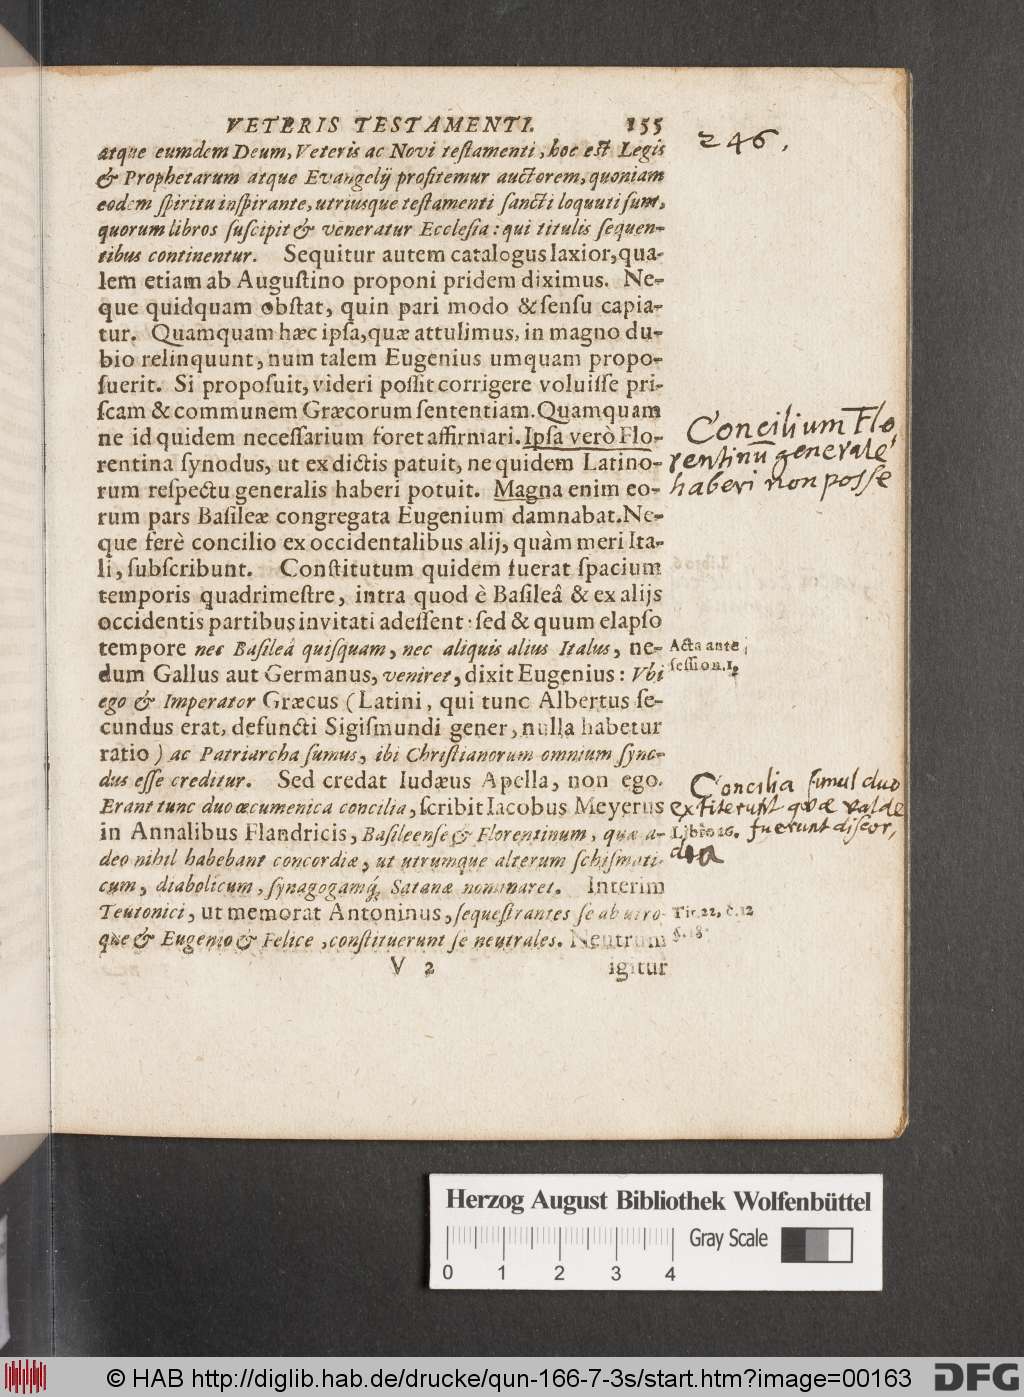 VETERIS TESTAMENTI. 155
246.
atque eumdem Deum, Veteris ac Novi teſtamenti, hoc eſt Legis
& Prophetarum atque Evangelij profitemur auctorem, quoniam
eodem ſpiritu inſpirante, utriusque teſtamenti ſancti loquuti ſunt,
quorum libros ſuſcipit & veneratur Eccleſia: qui titulis ſequen-
tibus continentur. Sequitur autem catalogus laxior, qua-
lem etiam ab Auguſtino proponi pridem diximus. Ne-
que quidquam obſtat, quin pari modo & ſenſu capia-
tur. Quamquam hæc ipſa, quæ attulimus, in magno du-
bio relinquunt, num talem Eugenius umquam propo-
ſuerit. Si propoſuit, videri poſſit corrigere voluiſſe pri-
ſcam & communem Græcorum ſententiam. Quamquam
ne id quidem neceſſarium foret affirmari. Ipſa verò Flo-
rentina ſynodus, ut ex dictis patuit, ne quidem Latino-
rum reſpectu generalis haberi potuit. Magna enim eo-
Concilium Flo,
rentinū generale
haberi non posse
rum pars Baſileæ congregata Eugenium damnabat. Ne-
que ferè concilio ex occidentalibus alij, quàm meri Ita-
li, ſubſcribunt. Conſtitutum quidem fuerat ſpacium
temporis quadrimeſtre, intra quod è Baſileâ & ex alijs
occidentis partibus invitati adeſſent: ſed & quum elapſo
tempore nec Baſileâ quiſquam, nec aliquis alius Italus, ne-
dum Gallus aut Germanus, veniret, dixit Eugenius: Vbi
Acta ante
ſeſſion. 1,
ego & Imperator Græcus (Latini, qui tunc Albertus ſe-
cundus erat, defuncti Sigiſmundi gener, nulla habetur
ratio) ac Patriarcha ſumus, ibi Chriſtianorum omnium ſyno-
dus eſſe creditur. Sed credat Iudæus Apella, non ego.
Erant tunc duo œcumenica concilia, ſcribit Iacobus Meyerus
in Annalibus Flandricis, Baſileenſe & Florentinum, quæ a-
Concilia simul duo
extiterunt quæ valde
Libro 16. fuerunt discor,
dia
deo nihil habebant concordiæ, ut utrumque alterum ſchiſmati-
cum, diabolicum, ſynagogamq́; Satanæ nominaret. Interim
Teutonici, ut memorat Antoninus, ſequeſtrantes ſe ab utro-
que & Eugenio & Felice, conſtituerunt ſe neutrales. Neutrum
Tit. 22, c. 12
V 2 igitur
Herzog August Bibliothek Wolfenbüttel
Gray Scale
0 1 2 3 4
© HAB http://diglib.hab.de/drucke/qun-166-7-3s/start.htm?image=00163
DFG